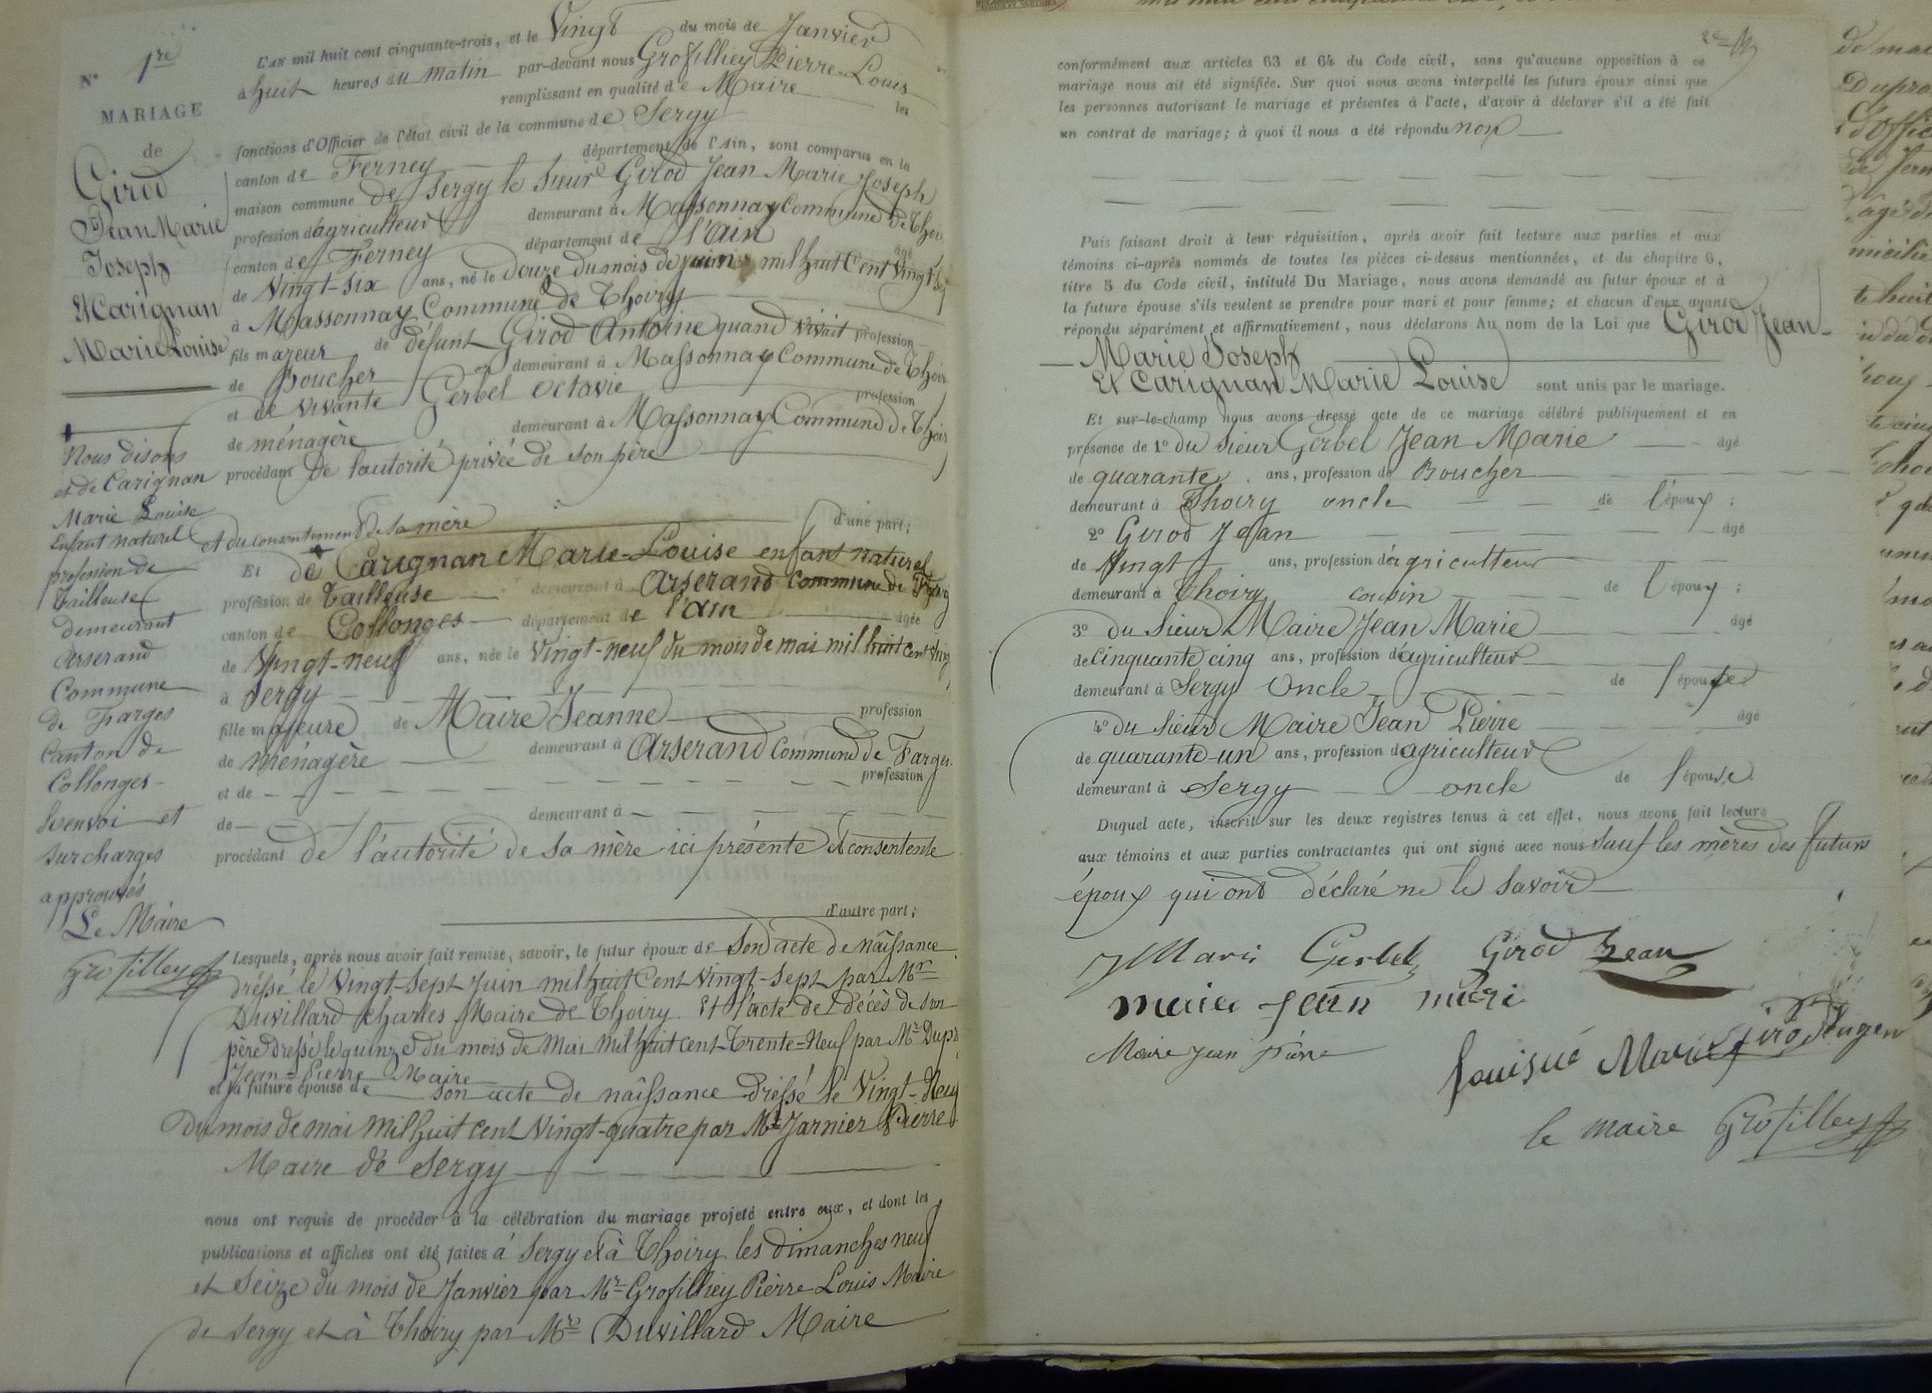 N° 1re
MARIAGE
de
Girod
Jean Marie
Joseph
Et Carignan
Marie Louise
Nous disons
et de Carignan
Marie Louise
Enfant naturel
profession de
Tailleuse
demeurant
Arserand
Commune
de Farges
Canton de
Collonges
Renvoi et
surcharges
approuvés
Le Maire
Grosfilley
L'an mil huit cent cinquante-trois, et le Vingt du mois de Janvier
à huit heures du matin par-devant nous Grosfilley Pierre-Louis
remplissant en qualité de Maire les
fonctions d'Officier de l'état civil de la commune de Sergy
canton de Ferney département de l'Ain, sont comparus en la
maison commune de Sergy le Sieur Girod Jean Marie Joseph
profession d'agriculteur demeurant à Massonnay Commune de Thoiry
canton de Ferney département de l'Ain âgé
de Vingt-six ans, né le douze du mois de juin mil huit Cent Vingt
à Massonnay Commune de Thoiry
fils majeur de défunt Girod Antoine quand vivait profession
de Boucher demeurant à Massonnay Commune de Thoiry
et de vivante Gerbel Octavie profession
de ménagère demeurant à Massonnay Commune de Thoiry
procédant De l'autorité privée de son père
et du consentement de sa mère d'une part;
Et de Carignan Marie-Louise enfant naturel
profession de Tailleuse demeurant à Arserand Commune de Farges
canton de Collonges département de l'ain âgée
de Vingt-neuf ans, née le Vingt-neuf du mois de mai mil huit cent vingt
à Sergy
fille majeure de Maire Jeanne profession
de ménagère demeurant à Arserand Commune de Farges
et de profession
de demeurant à
procédant de l'autorité de sa mère ici présente et consentente
d'autre part;
Lesquels, après nous avoir fait remise, savoir, le futur époux de Son acte de naissance
dréssé le Vingt-sept Juin mil huit Cent Vingt-sept par Mr
Duvillard charles Maire de Thoiry. Et l'acte de décès de son
père dréssé le quinze du mois de Mai mil huit cent-Trente-Neuf par Mr
Jean-Pierre Maire
et la future épouse de son acte de naissance dréssé le Vingt-Neuf
Du mois de mai mil huit cent Vingt-quatre par Mr Jarnier Pierre
Maire de Sergy
nous ont requis de procéder à la célébration du mariage projeté entre eux, et dont les
publications et affiches ont été faites à Sergy et à Thoiry les dimanches neuf
et Seize du mois de Janvier par Mr Grosfilley Pierre Louis Maire
de Sergy et à Thoiry par Mr Duvillard Maire
conformément aux articles 63 et 64 du Code civil, sans qu'aucune opposition à ce
mariage nous ait été signifiée. Sur quoi nous avons interpellé les futurs époux ainsi que
les personnes autorisant le mariage et présentes à l'acte, d'avoir à déclarer s'il a été fait
un contrat de mariage; à quoi il nous a été répondu non
Puis faisant droit à leur réquisition, après avoir fait lecture aux parties et aux
témoins ci-après nommés de toutes les pièces ci-dessus mentionnées, et du chapitre 6,
titre 5 du Code civil, intitulé Du Mariage, nous avons demandé au futur époux et à
la future épouse s'ils veulent se prendre pour mari et pour femme; et chacun d'eux ayant
répondu séparément et affirmativement, nous déclarons Au nom de la Loi que Girod Jean-
Marie Joseph
Et Carignan Marie Louise sont unis par le mariage.
Et sur-le-champ nous avons dressé acte de ce mariage célébré publiquement et en
présence de 1° du sieur Gerbel Jean Marie âgé
de quarante ans, profession de Boucher
demeurant à Thoiry oncle de l'époux;
2° Girod Jean âgé
de Vingt ans, profession d'agriculteur
demeurant à Thoiry cousin de l'époux;
3° du Sieur Maire Jean Marie âgé
de Cinquante cinq ans, profession d'agriculteur
demeurant à Sergy Oncle de l'épouse
4° du Sieur Maire Jean Pierre âgé
de quarante-un ans, profession d'agriculteur
demeurant à Sergy oncle de l'épouse
Duquel acte, inscrit sur les deux registres tenus à cet effet, nous avons fait lecture
aux témoins et aux parties contractantes qui ont signé avec nous sauf les mères des futurs
époux qui ont déclaré ne le savoir
J Marie Gerbel Girod Jean
maire Jean mari
Maire Jean Pierre
le maire Grosfilley